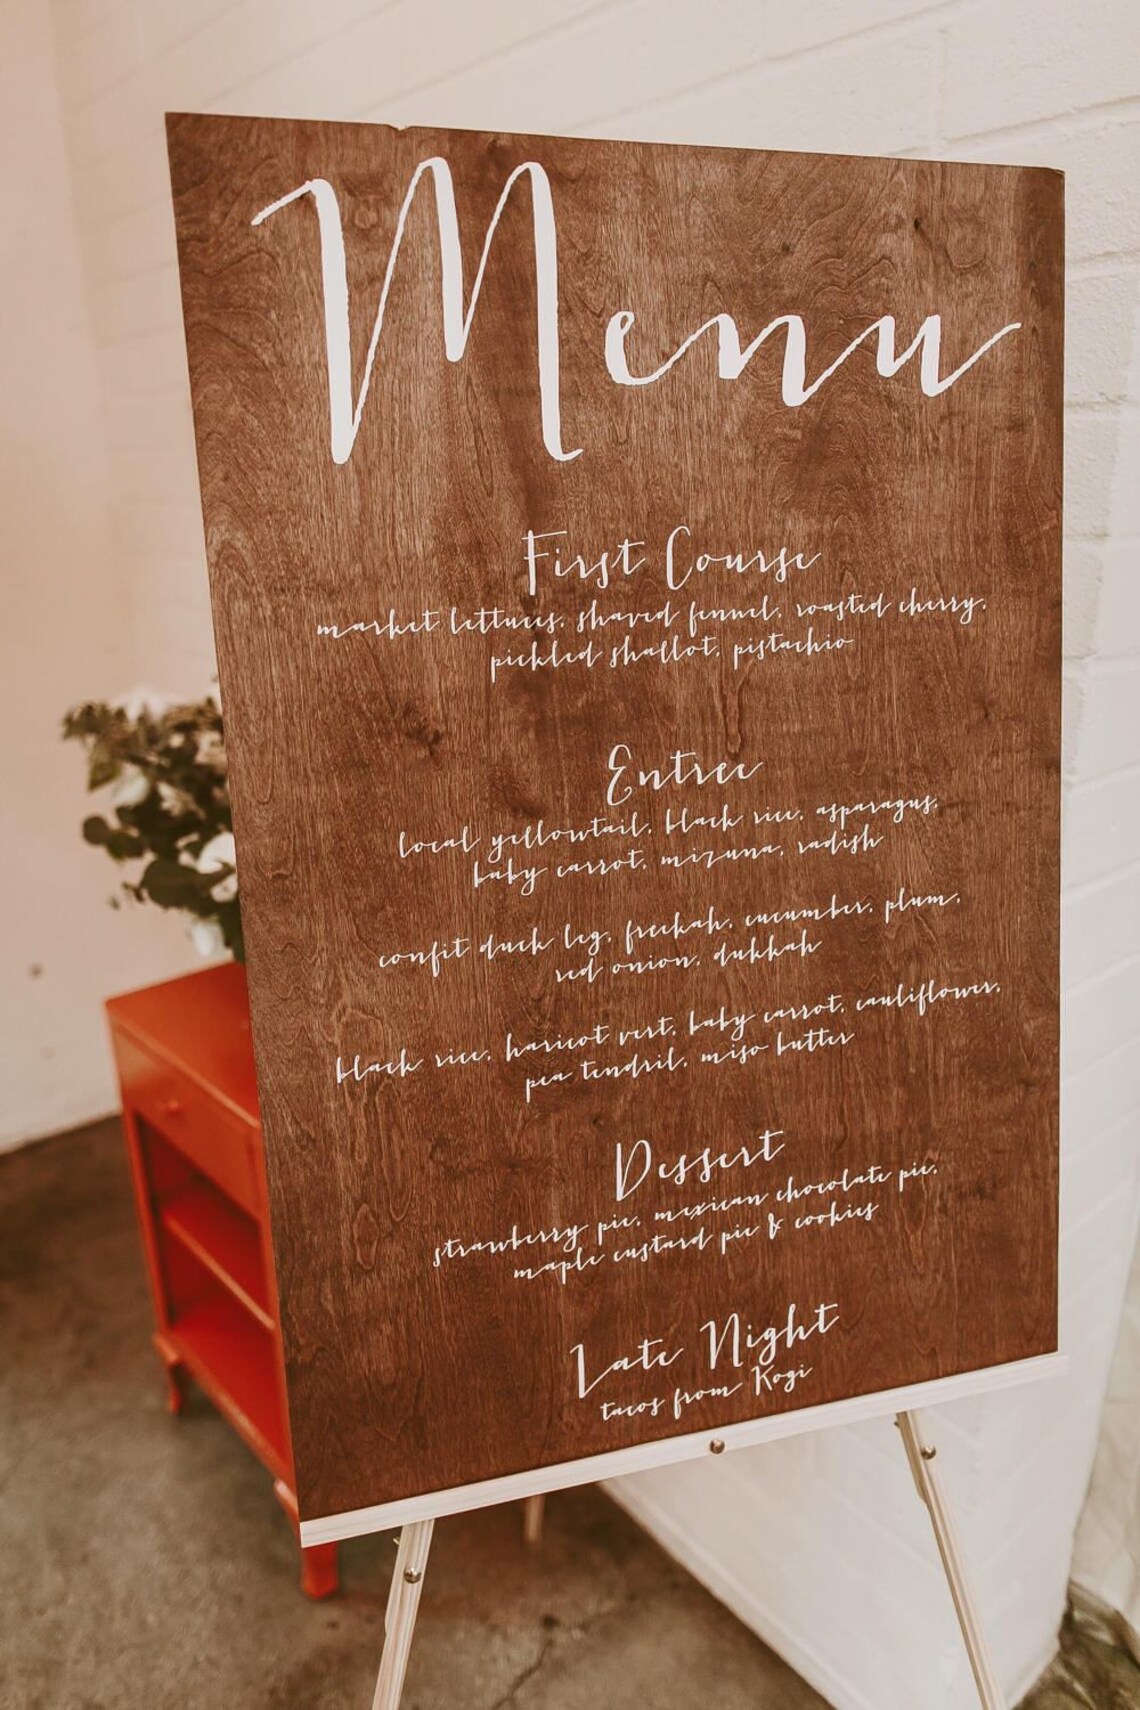 Menu
First Course
market lettuces, shaved fennel, roasted cherry,
pickled shallot, pistachio
Entree
local yellowtail, black rice, asparagus,
baby carrot, mizuna, radish
confit duck leg, freekah, cucumber, plum,
red onion, dukkah
black rice, haricot vert, baby carrot, cauliflower,
pea tendril, miso butter
Dessert
strawberry pie, mexican chocolate pie,
maple custard pie & cookies
Late Night
tacos from Kogi